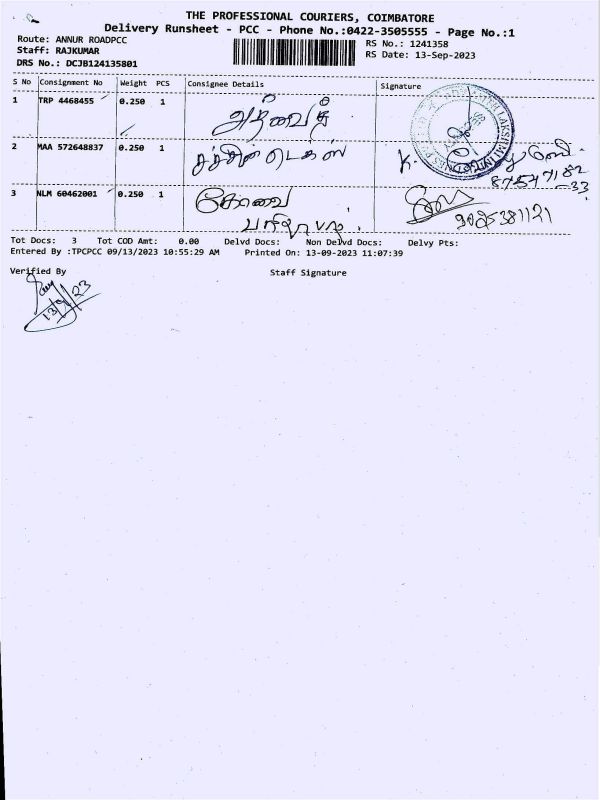 THE PROFESSIONAL COURIERS, COIMBATORE
Delivery Runsheet - PCC - Phone No.:0422-3505555 - Page No.:1
Route: ANNUR ROADPCC
RS No.: 1241358
Staff: RAJKUMAR
RS Date: 13-Sep-2023
DRS No.: DCJB124135801
S No Consignment No Weight PCS Consignee Details Signature
1 TRP 4468455 0.250 1 அத்வைத்
2 MAA 572648837 0.250 1 சச்சின் டெக்ஸ் K.
87547182
-33
3 NLM 60462001 0.250 1 கோவை
Tot Docs: 3 Tot COD Amt: 0.00 Delvd Docs: Non Delvd Docs: Delvy Pts:
Entered By :TPCPCC 09/13/2023 10:55:29 AM Printed On: 13-09-2023 11:07:39
Verified By Staff Signature
13/9/23